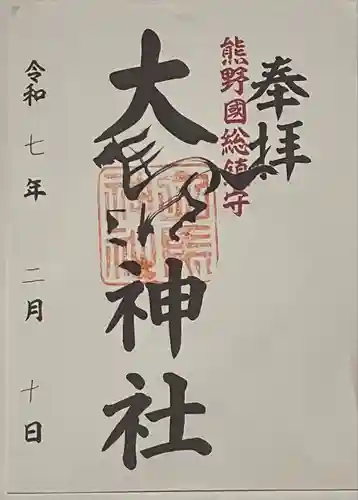 奉拝
熊野國総鎮守
大馬神社
令和七年 二月 十日